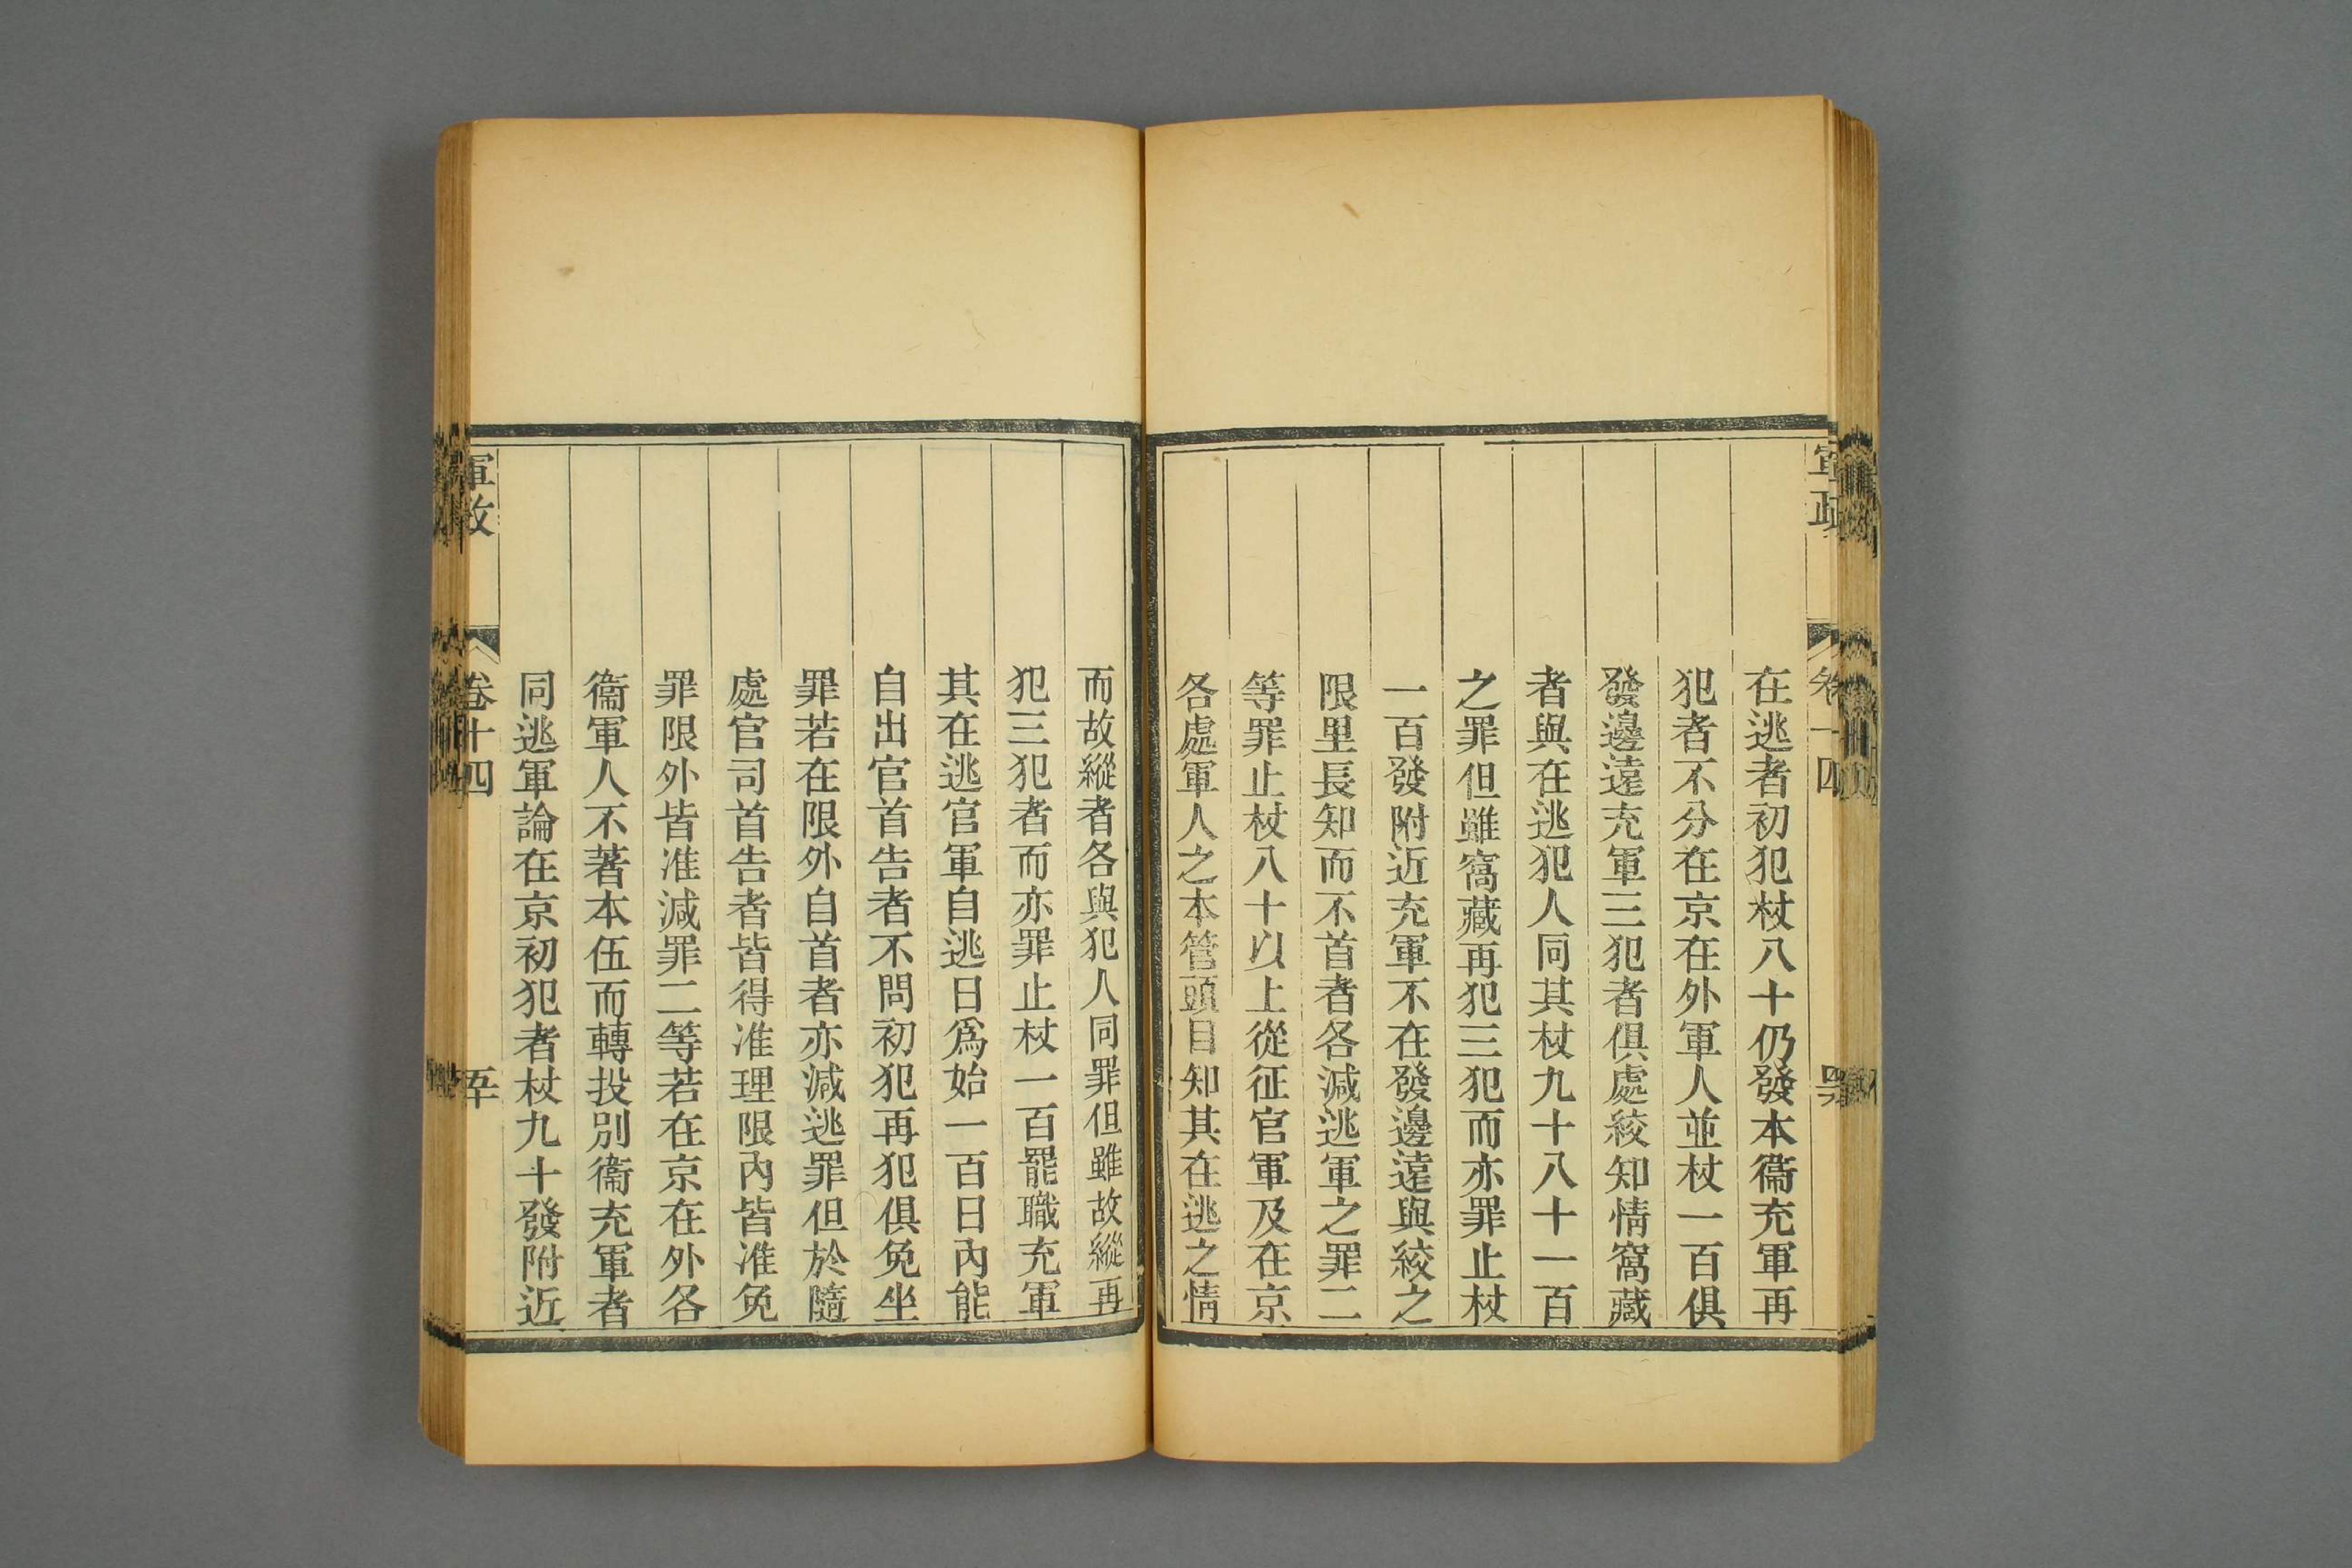 軍政
卷十四
在逃者初犯杖八十仍發本衞充軍再
犯者不分在京在外軍人並杖一百俱
發邊遠充軍三犯者俱處絞知情窩藏
者與在逃犯人同其杖九十八十一百
之罪但雖窩藏再犯三犯而亦罪止杖
一百發附近充軍不在發邊遠與絞之
限里長知而不首者各減逃軍之罪二
等罪止杖八十以上從征官軍及在京
各處軍人之本管頭目知其在逃之情
而故縱者各與犯人同罪但雖故縱再
犯三犯者而亦罪止杖一百罷職充軍
其在逃官軍自逃日爲始一百日內能
自出官首告者不問初犯再犯俱免坐
罪若在限外自首者亦減逃罪但於隨
處官司首告者皆得准理限內皆准免
罪限外皆准減罪二等若在京在外各
衞軍人不著本伍而轉投別衞充軍者
同逃軍論在京初犯者杖九十發附近
軍政
卷十四
五十